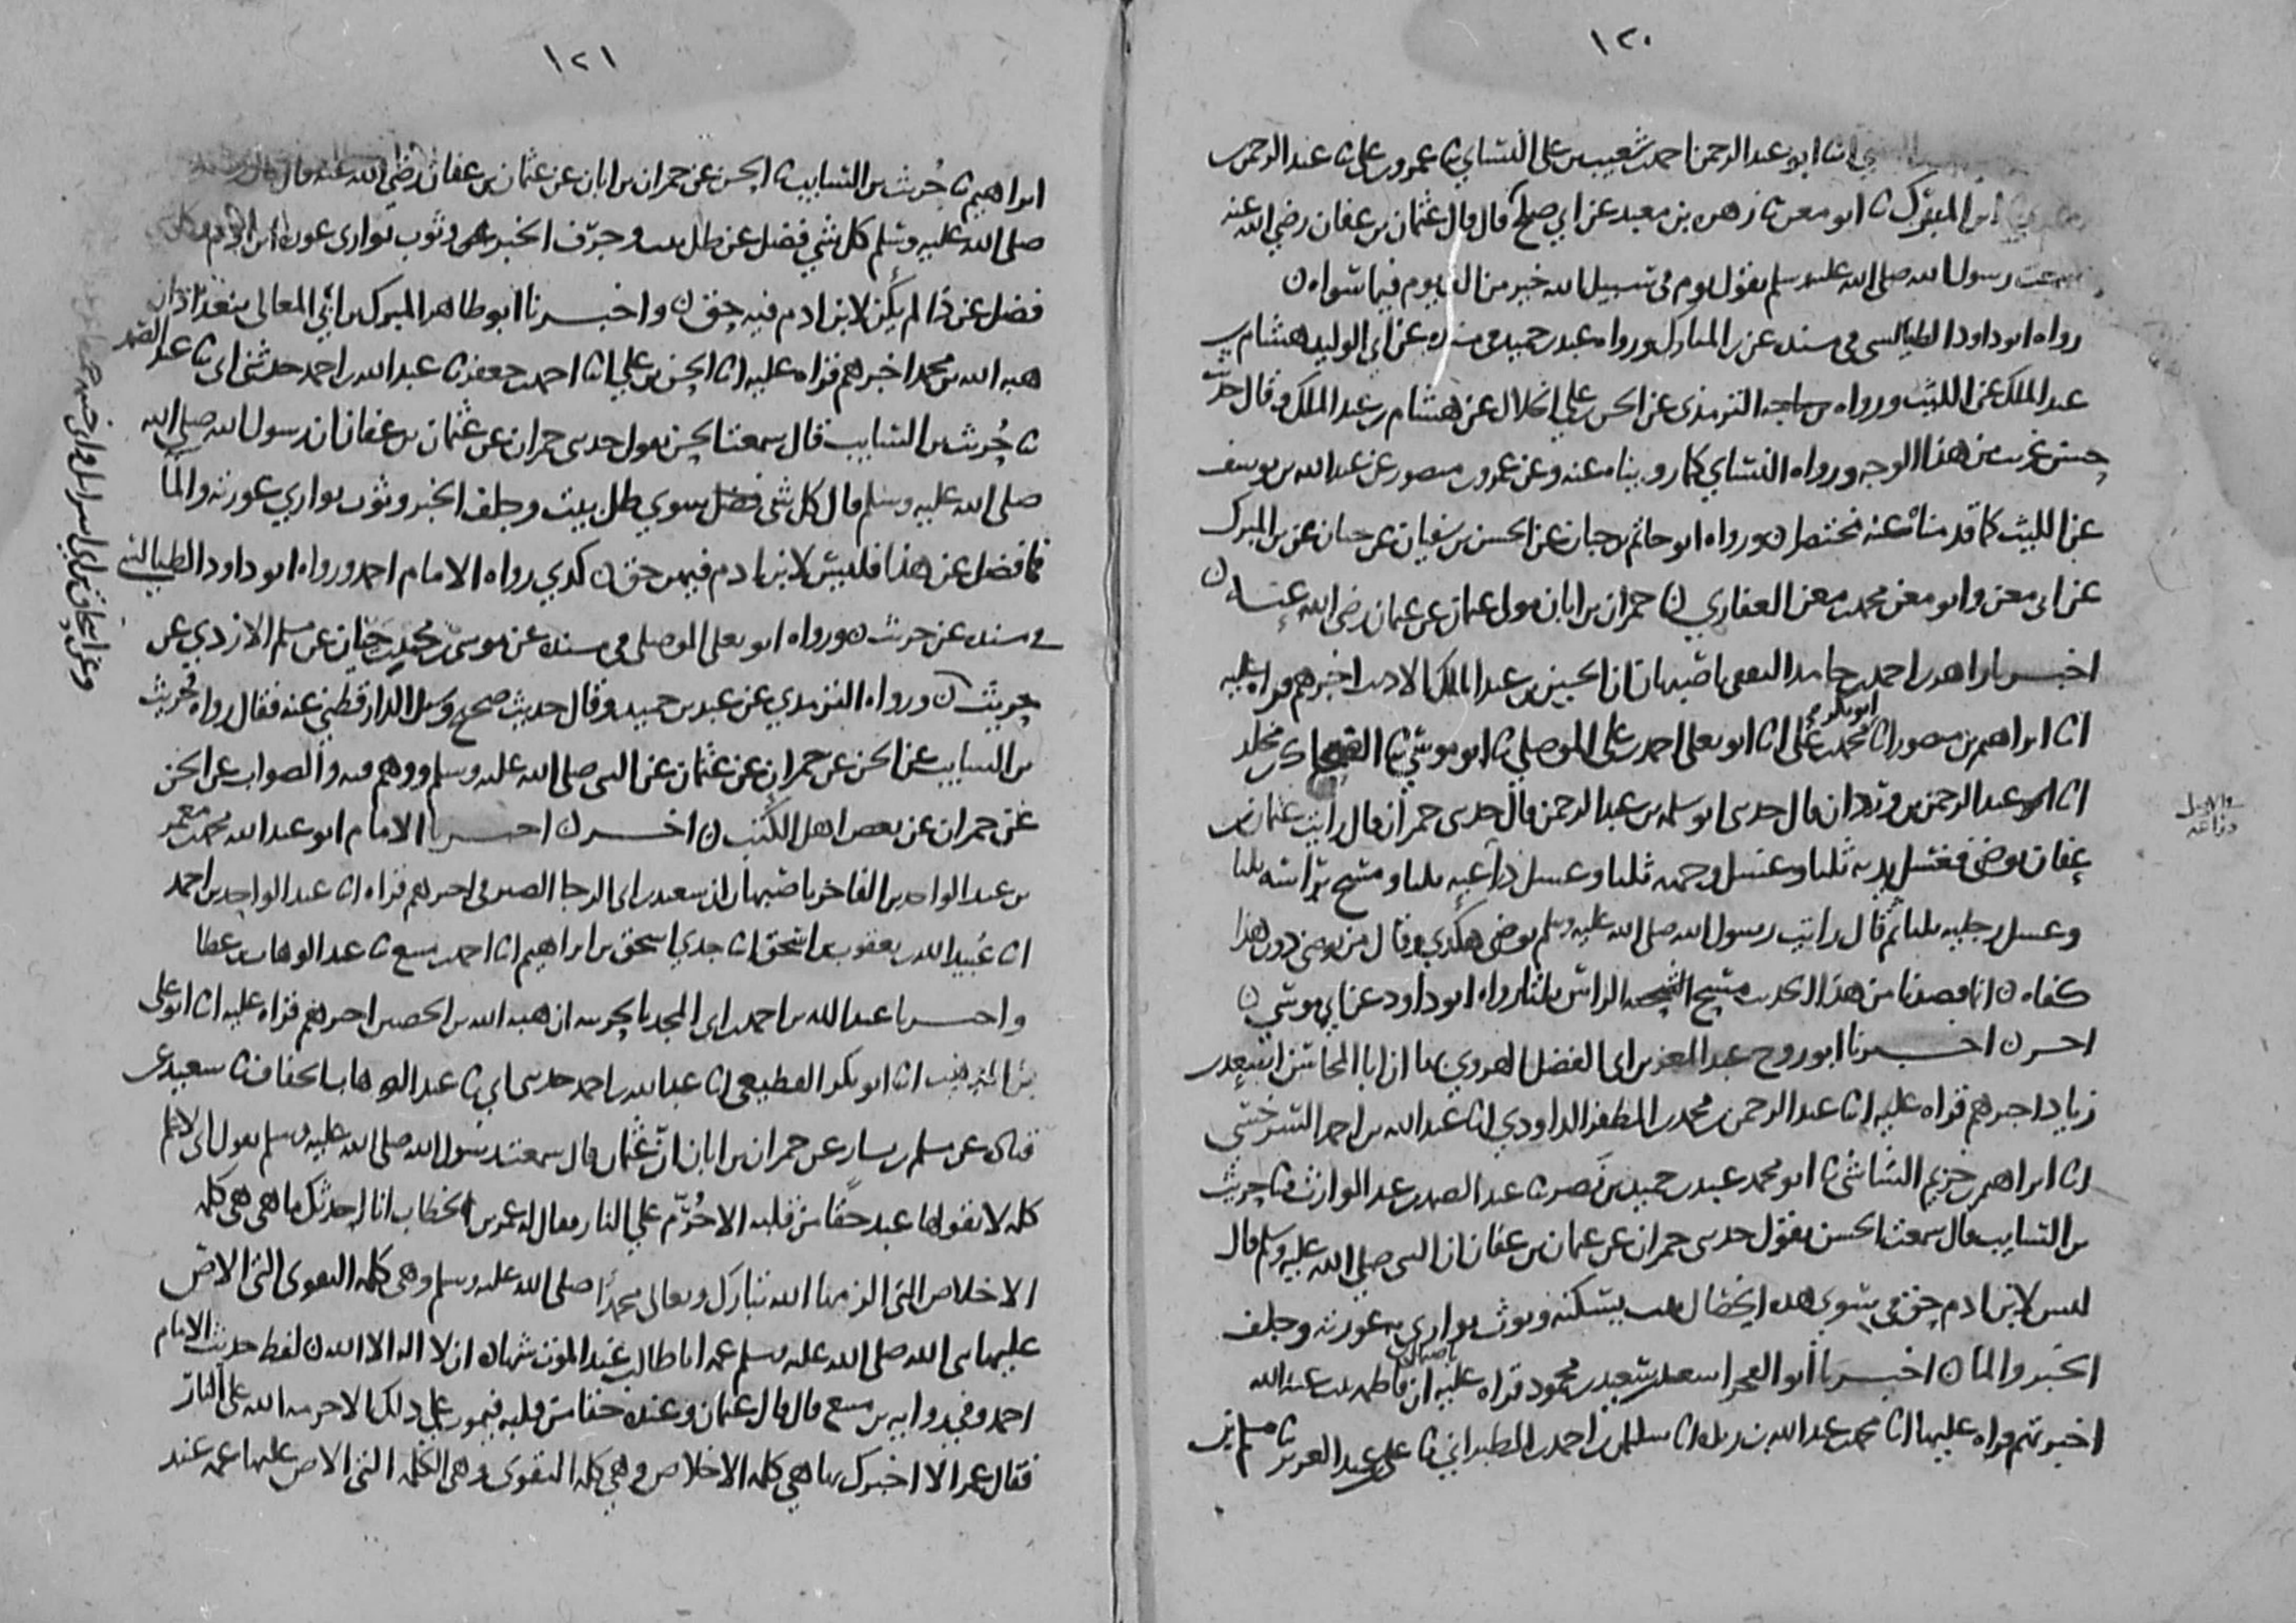 ١٢٠
انا ابو عبد الرحمن احمد بن شعيب بن علي النسائي ثنا عمرو بن علي ثنا عبد الرحمن
ابن المبرك ثنا ابو معن ثنا زهره بن معبد عن ابي صلح قال قال عثمان بن عفان رضي الله عنه
سمعت رسول الله صلى الله عليه وسلم يقول يوم في سبيل الله خير من الف يوم فيما سواه ن
رواه ابو داود الطيالسي في مسنده عن بن المبارك ورواه عبد بن حميد في مسنده عن ابي الوليد هشام بن
عبد الملك عن الليث ورواه الترمذي عن الحسن بن علي الخلال عن هشام بن عبد الملك وقال حديث
حسن غريب من هذا الوجه ورواه النسائي كما رويناه عنه وعن عمرو بن منصور عن عبد الله بن يوسف
عن الليث كما قدمناه عنه مختصرا ن ورواه ابو حاتم بن حبان عن الحسن بن سفيان عن حبان عن بن المبرك
عن ابي معن وابو معن محمد بن معن الغفاري ن حمران بن ابان مولى عثمان عن عثمان رضي الله عنه ن
اخبرنا زاهر بن احمد بن حامد الثقفي باصبهان ان الحسين بن عبد الملك الاديب اخبرهم قراه عليه
انا ابراهيم بن منصور انا ابو بكر محمد بن علي انا ابو يعلى احمد بن علي الموصلي ثنا ابو موسى ثنا الضحاك بن مخلد
انا عبد الرحمن بن وردان قال حدثني ابو سلمه بن عبد الرحمن قال حدثني حمران قال رايت عثمان بن
عفان توضى فغسل يديه ثلثا وغسل وجهه ثلثا وغسل ذراعيه ثلثا ومسح براسه ثلثا
وغسل رجليه ثلثا ثم قال رايت رسول الله صلى الله عليه وسلم توضى هكذي وقال من توضى دون هذا
كفاه ن انما قصدنا من هذا الحديث مسح الراس ثلثا رواه ابو داود عن ابي موسى ن
اخر ن اخبرنا ابو روح عبد المعز بن ابي الفضل الهروي بها ان ابا المحاسن اسعد بن
زياد اخبرهم قراه عليه انا عبد الرحمن بن محمد بن المظفر الداودي انا عبد الله بن احمد السرخسي
انا ابراهيم بن خزيم الشاشي ثنا ابو محمد عبد بن حميد بن نصر ثنا عبد الصمد بن عبد الوارث ثنا حريث
بن السايب قال سمعت الحسن يقول حدثني حمران عن عثمان بن عفان ان النبي صلى الله عليه وسلم قال
ليس لابن ادم حق في سوى هذه الخصال بيت يسكنه وثوب يواري به عورته وجلف
الخبز والما ن اخبرنا ابو الفخر اسعد بن سعيد بن محمود قراه عليه باصبهان ان فاطمه بنت عبد الله
اخبرتهم قراه عليها انا محمد بن عبد الله بن ريذه انا سليمن بن احمد الطبراني ثنا علي بن عبد العزيز ثنا مسلم بن
١٢١
ابراهيم ثنا حريث بن السايب ثنا الحسن عن حمران بن ابان عن عثمان بن عفان رضي الله عنه قال قال رسول الله
صلى الله عليه وسلم كل شي فضل عن ظل بيت وجرف الخبز وثوب يواري عورة ابن ادم
فضل عن ذا لم يكن لابن ادم فيه حق ن واخبرنا ابو طاهر المبرك بن ابي المعالي ببغداد ان
هبه الله بن محمد اخبرهم قراه عليه انا الحسن بن علي انا احمد بن جعفر ثنا عبد الله بن احمد حدثني ابي ثنا عبد الصمد
ثنا حريث بن السايب قال سمعت الحسن يقول حدثني حمران عن عثمان بن عفان ان رسول الله صلى الله
صلى الله عليه وسلم قال كل شي سوى ظل بيت وجلف الخبز وثوب يواري عورته والما
فما فضل عن هذا فليس لابن ادم فيهن حق ن كذي رواه الامام احمد ورواه ابو داود الطيالسي
في مسنده عن حريث ن ورواه ابو يعلى الموصلي في مسنده عن موسى بن محمد بن حيان عن مسلم الازدي عن
حريث ن ورواه الترمذي عن عبد بن حميد وقال حديث صحيح وسئل الدارقطني عنه فقال رواه حريث
بن السايب عن الحسن عن حمران عن عثمان عن النبي صلى الله عليه وسلم ووهم فيه والصواب عن الحسن
عن حمران عن بعض اهل الكتب ن اخر ن اخبرنا الامام ابو عبد الله محمد بن معمر
بن عبد الواحد بن الفاخر باصبهان ان سعيد بن ابي الرجا الصيرفي اخبرهم قراه انا عبد الواحد بن احمد
انا عبيد الله بن يعقوب بن اسحق انا جدي اسحق بن ابراهيم انا احمد بن منيع ثنا عبد الوهاب بن عطا
واخبرنا عبد الله بن احمد بن ابي المجد بالحربيه ان هبه الله بن الحصين اخبرهم قراه عليه انا ابو علي
بن المذهب انا ابو بكر القطيعي انا عبد الله بن احمد حدثني ابي ثنا عبد الوهاب الخفاف ثنا سعيد عن
قتادة عن مسلم بن يسار عن حمران بن ابان ان عثمان قال سمعت رسول الله صلى الله عليه وسلم يقول اني لاعلم
كلمه لا يقولها عبد حقا من قلبه الا حرم على النار فقال له عمر بن الخطاب انا احدثك ما هي هي كلمه
الاخلاص التي الزمها الله تبارك وتعالى محمدا صلى الله عليه وسلم وهي كلمه التقوى التي الاص
عليها نبي الله صلى الله عليه وسلم عمه ابا طالب عند الموت شهادة ان لا اله الا الله ن لفظ حديث الامام
احمد وفي رواية بن منيع قال قال عثمان وعنده حقا من قلبه فيموت على ذلك الا حرمه الله على النار
فقال عمر الا اخبرك بما هي كلمه الاخلاص وهي كلمه التقوى وهي الكلمه التي الاص عليها عمه عند